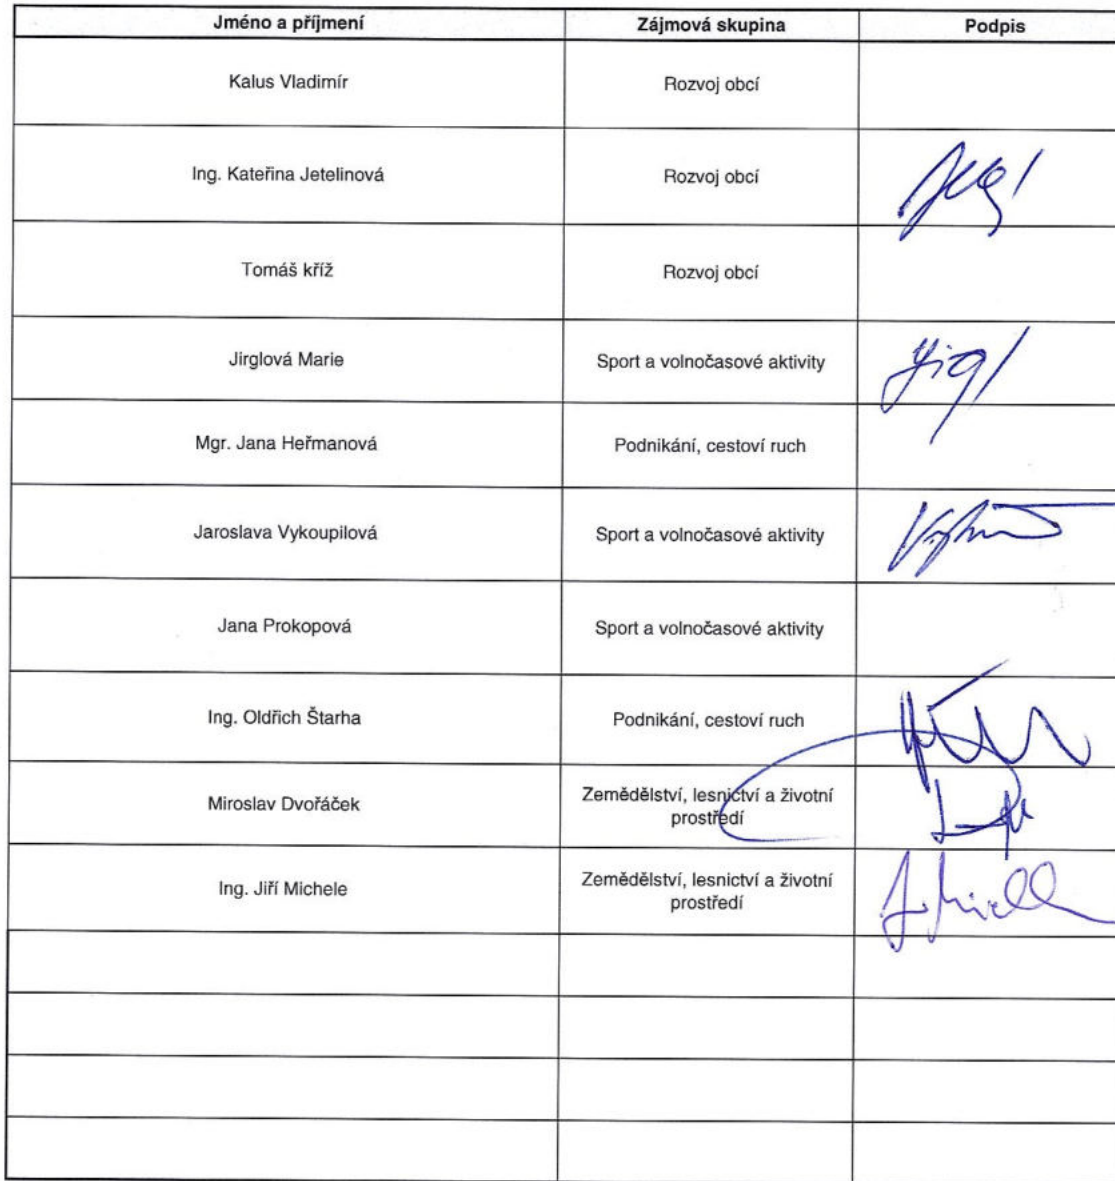 Jméno a příjmení Zájmová skupina Podpis
Kalus Vladimír Rozvoj obcí
Ing. Kateřina Jetelinová Rozvoj obcí
Tomáš kříž Rozvoj obcí
Jirglová Marie Sport a volnočasové aktivity
Mgr. Jana Heřmanová Podnikání, cestoví ruch
Jaroslava Vykoupilová Sport a volnočasové aktivity
Jana Prokopová Sport a volnočasové aktivity
Ing. Oldřich Štarha Podnikání, cestoví ruch
Miroslav Dvořáček Zemědělství, lesnictví a životní
prostředí
Ing. Jiří Michele Zemědělství, lesnictví a životní
prostředí